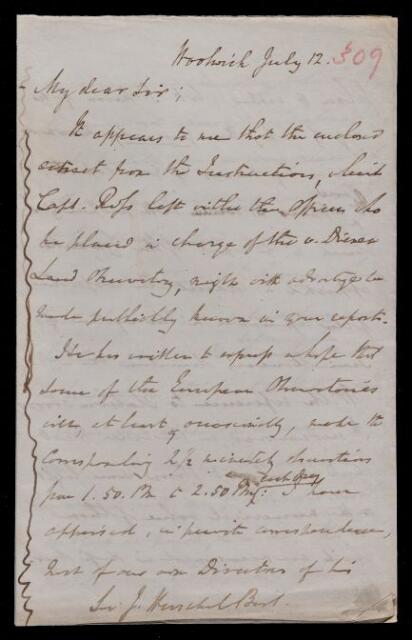 Woolwich July 12. 309
My dear Sir,
It appears to me that the enclosed
extract from the Instructions, which
Capt. Ross left with the Officer who
he placed in charge of the v. Diemen
Land Observatory, might with advantage be
made publickly known in your report.
He has written to express a hope that
some of the European Observatories
will, at least occasionally, make the
corresponding 2½ minutely observations
from 1.50. PM to 2.50 PM; each day I have
apprised, in private correspondence,
most of our own Directors of his
Sir J. Herschel Bart.